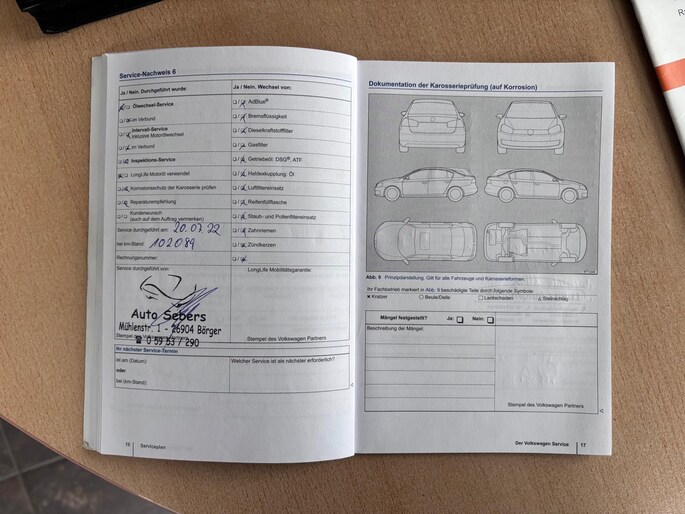 Service-Nachweis 6
Ja / Nein. Durchgeführt wurde:
Ölwechsel-Service
im Verbund
Intervall-Service
inklusive Motorölwechsel
im Verbund
Inspektions-Service
LongLife Motoröl verwendet
Korrosionsschutz der Karosserie prüfen
Reparaturempfehlung
Kundenwunsch
(auch auf dem Auftrag vermerken)
Service durchgeführt am: 20.07.22
bei km-Stand: 102089
Rechnungsnummer:
Service durchgeführt von:
Auto Sebers
Mühlenstr. 1 - 26904 Börger
☎ 0 59 53 / 290
Ihr nächster Service-Termin
ist am (Datum):
oder
bei (km-Stand):
Ja / Nein. Wechsel von:
AdBlue®
Bremsflüssigkeit
Dieselkraftstofffilter
Gasfilter
Getriebeöl: DSG®, ATF
Haldexkupplung: Öl
Luftfiltereinsatz
Reifenfüllflasche
Staub- und Pollenfiltereinsatz
Zahnriemen
Zündkerzen
LongLife Mobilitätsgarantie:
Stempel des Volkswagen Partners
Welcher Service ist als nächster erforderlich?
16 Serviceplan
Dokumentation der Karosserieprüfung (auf Korrosion)
Abb. 9 Prinzipdarstellung. Gilt für alle Fahrzeuge und Karosserieformen.
Ihr Fachbetrieb markiert in Abb. 9 beschädigte Teile durch folgende Symbole:
× Kratzer ○ Beule/Delle □ Lackschaden △ Steinschlag
Mängel festgestellt? Ja: □ Nein: □
Beschreibung der Mängel:
Stempel des Volkswagen Partners
Der Volkswagen Service 17